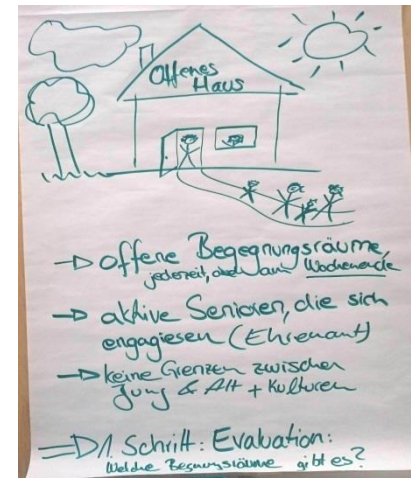 Offenes
Haus
→ offene Begegnungsräume,
jederzeit, auch am Wochenende
→ aktive Senioren, die sich
engagieren (Ehrenamt)
→ keine Grenzen zwischen
Jung & Alt + Kulturen
⇒ 1. Schritt: Evaluation:
Welche Begegnungsräume gibt es?